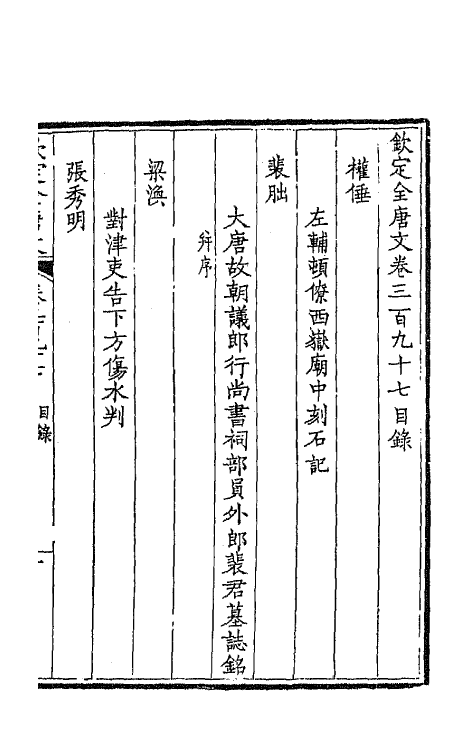 欽定全唐文卷三百九十七目錄
權倕
左輔頓僚西嶽廟中刻石記
裴朏
大唐故朝議郎行尚書祠部員外郎裴君墓誌銘
并序
梁渙
對津吏告下方傷水判
張秀明
目錄